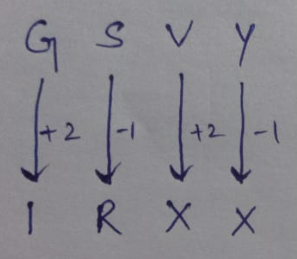 G S V Y
+2 -1 +2 -1
I R X X